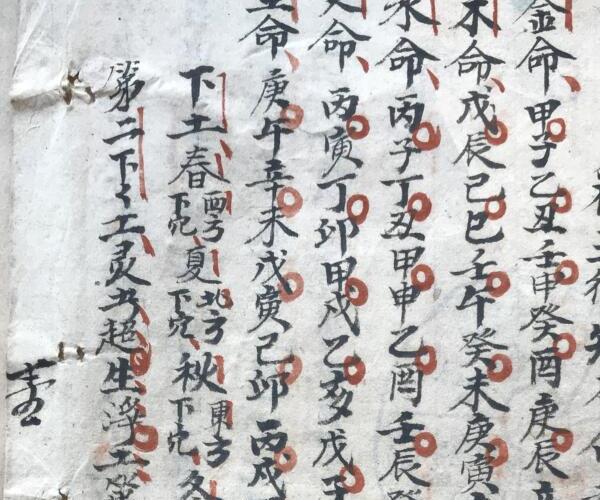 金命、甲子乙丑壬申癸酉庚辰
木命、戊辰己巳壬午癸未庚寅
水命、丙子丁丑甲申乙酉壬辰
火命、丙寅丁卯甲戌乙亥戊子
土命、庚午辛未戊寅己卯丙戌
下土春西方下穴夏北方下穴秋東方下穴冬
第二下土灵超生浮土第